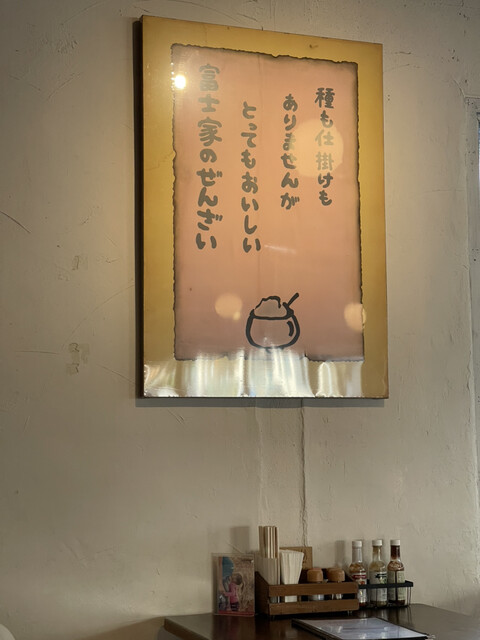 種も仕掛けも
ありませんが
とってもおいしい
富士家のぜんざい